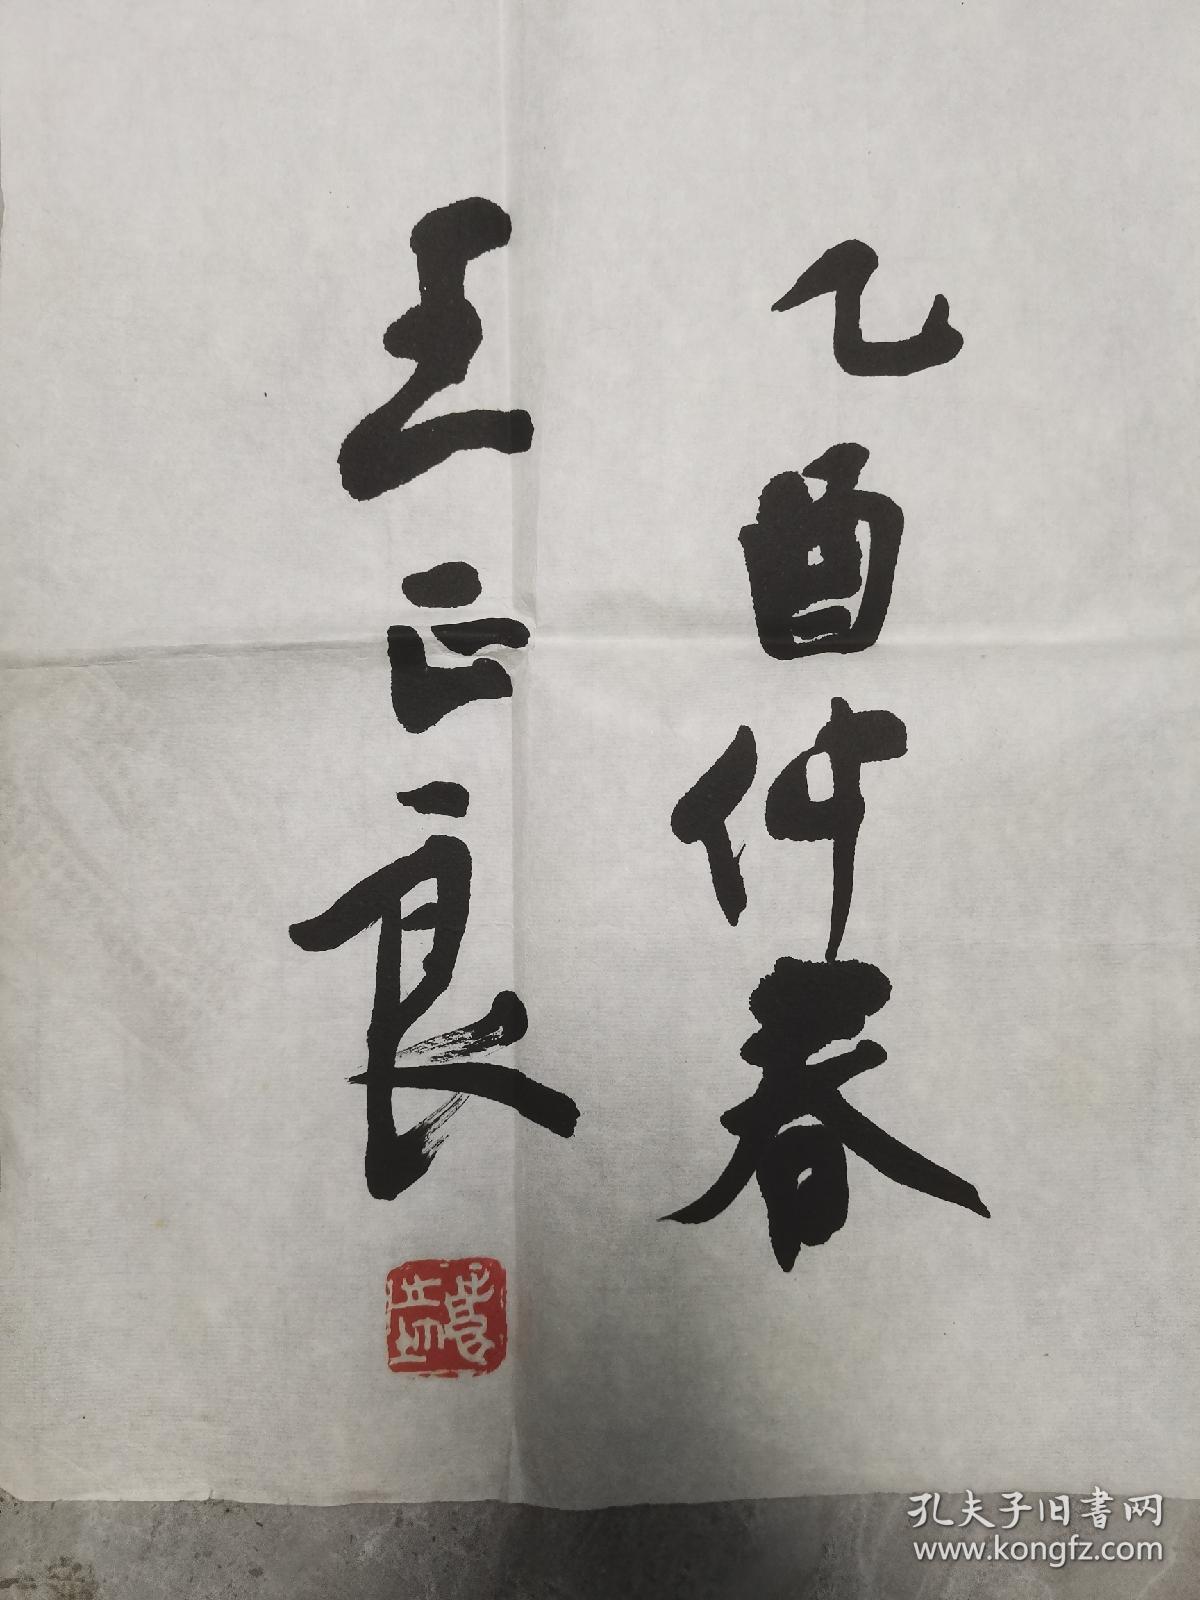 乙酉仲春
王正良
孔夫子旧书网
www.kongfz.com